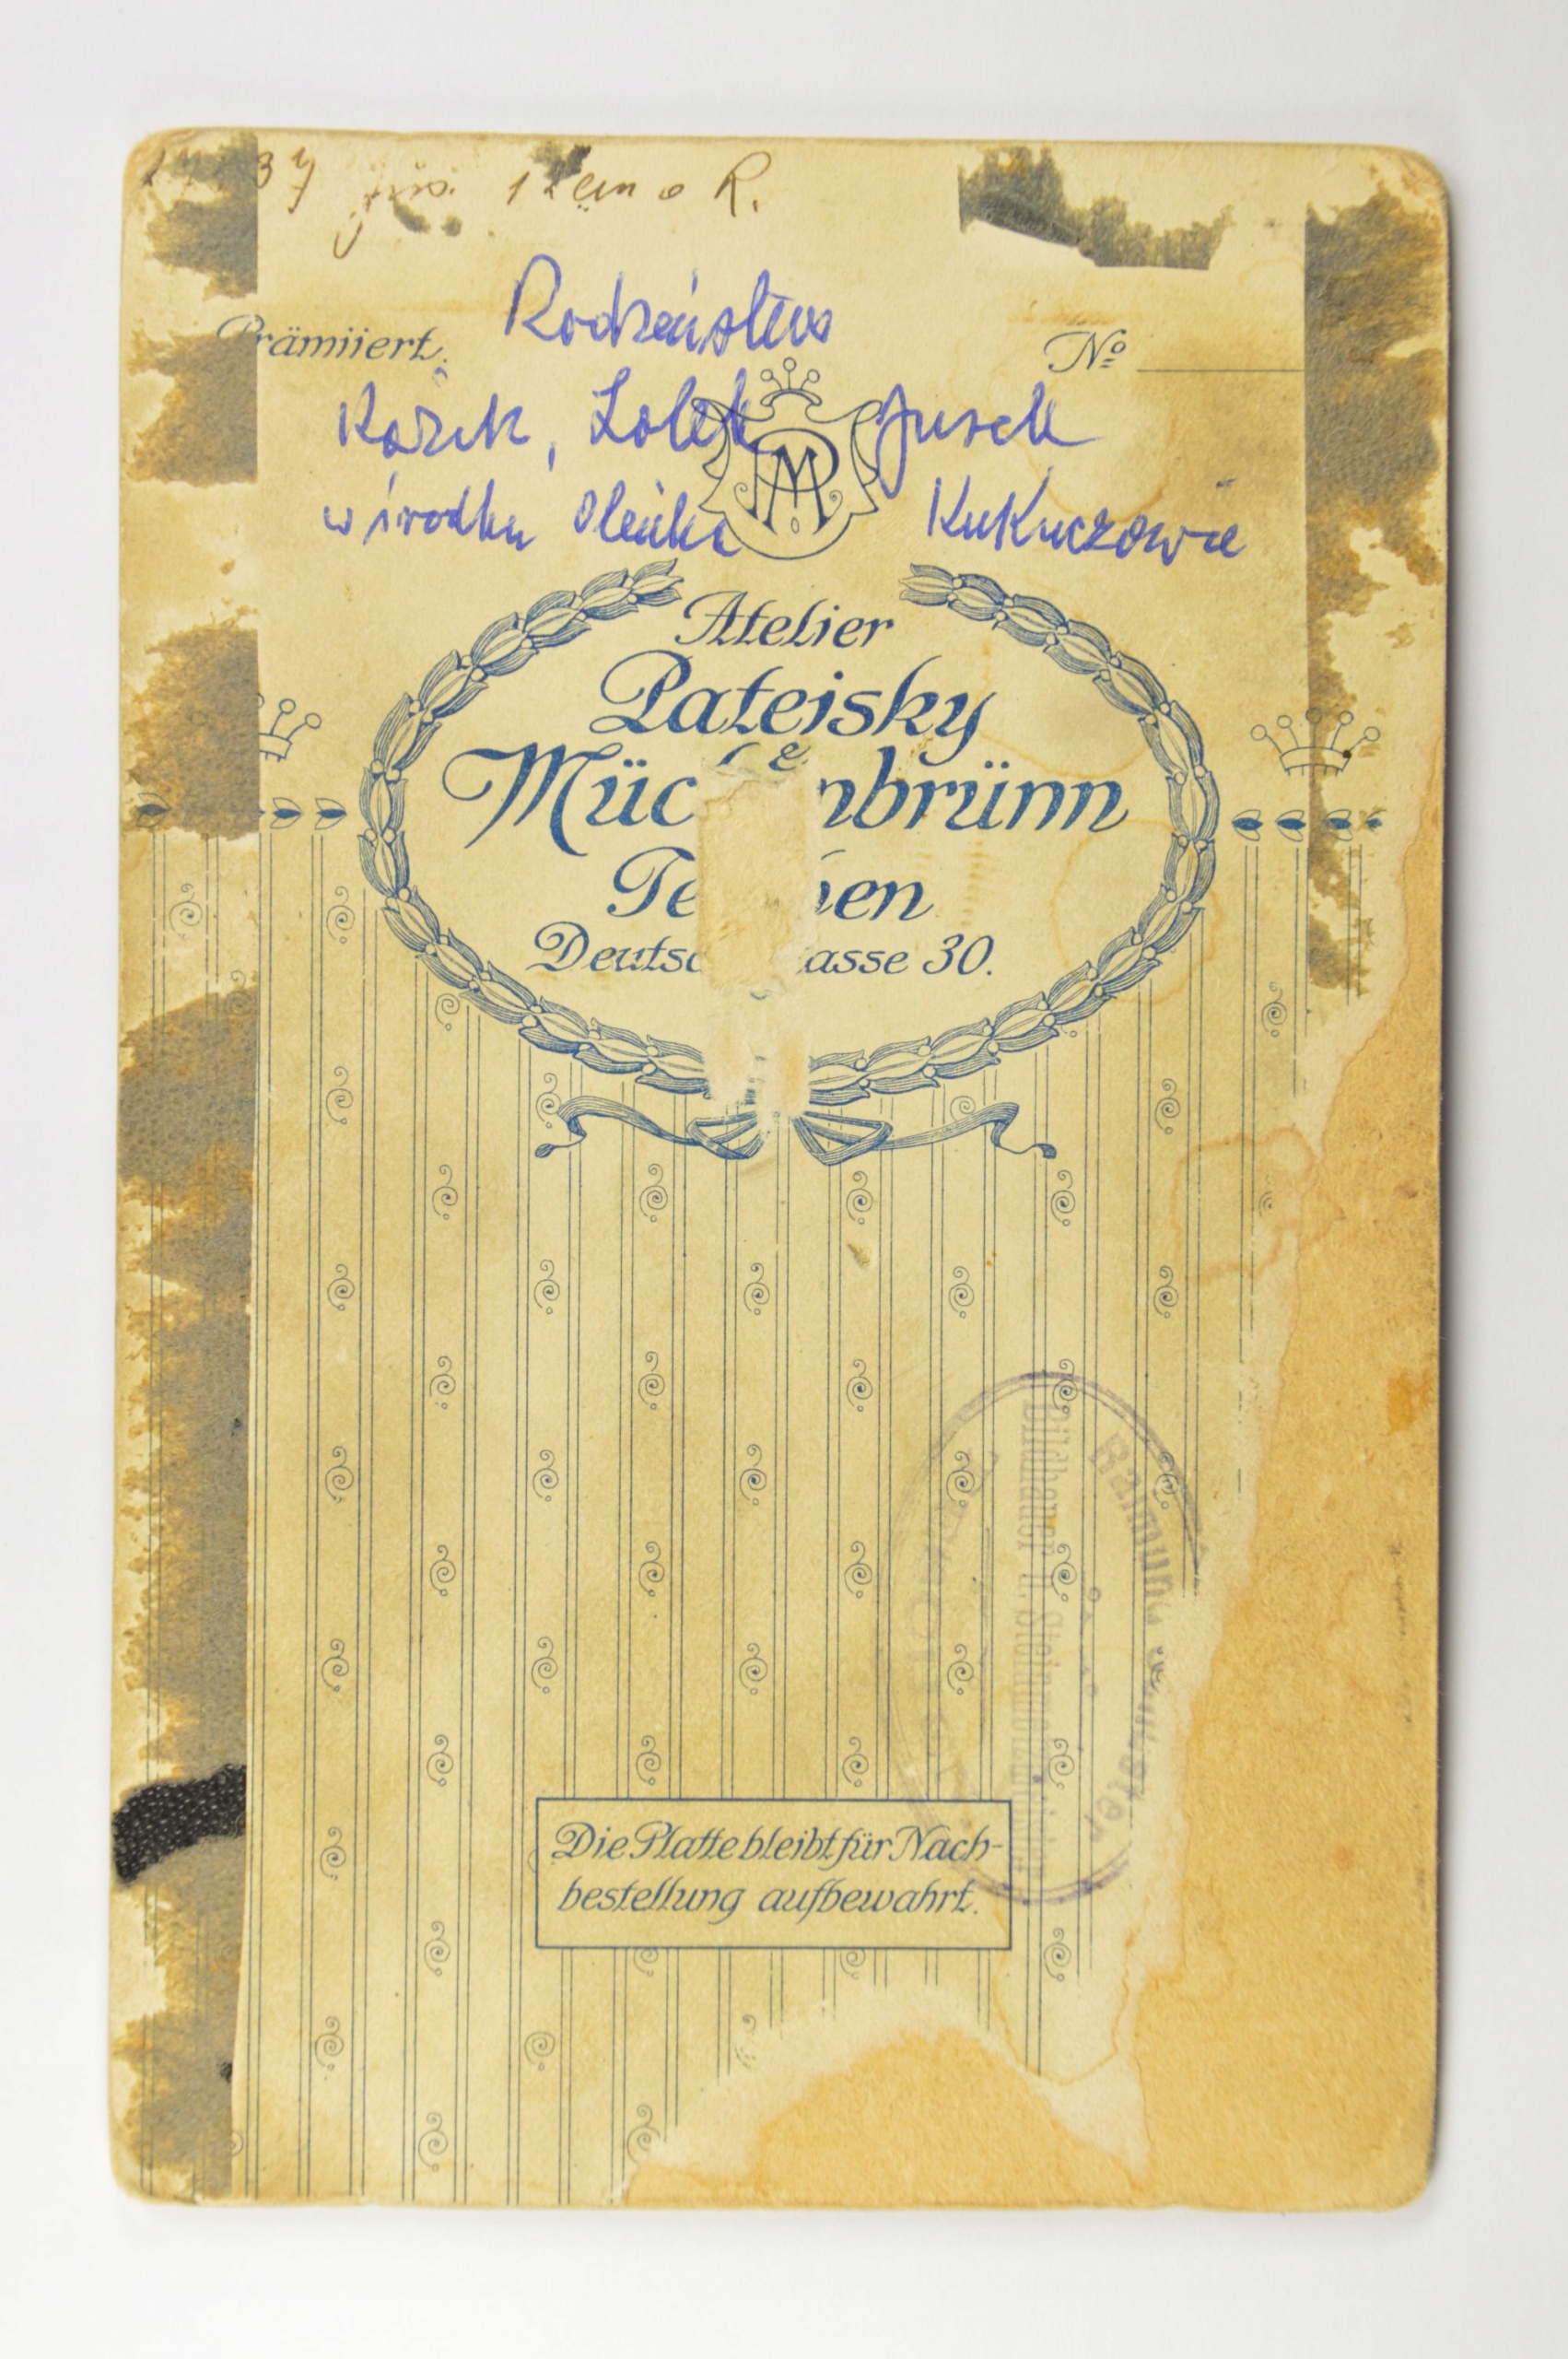 R.
Rodzeństwo
Prämiiert.
Nº
Kazik, Lolek Jusek
w środku Oleńka Kukuczowie
Atelier
Pateisky
&
Müc nbrünn
Te en
Deutsc asse 30.
Bildhauer u.
Die Platte bleibt für Nach-
bestellung aufbewahrt.